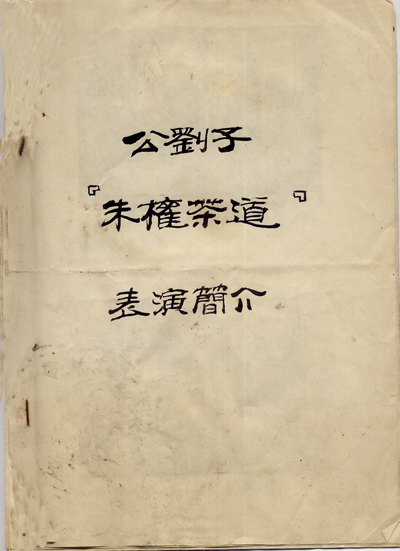 公劉子
『朱權茶道』
表演簡介